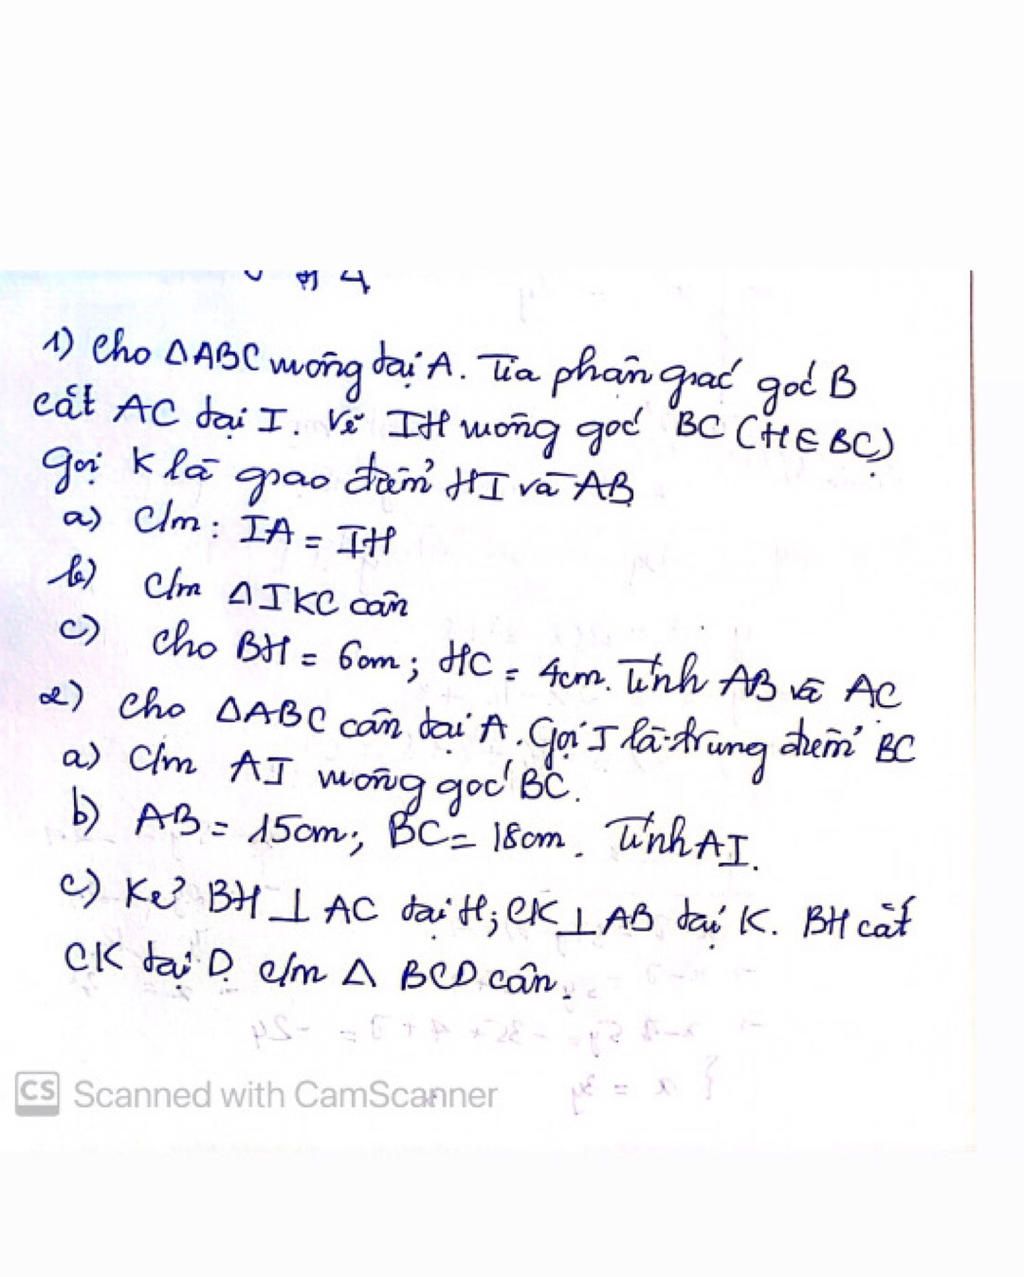 1) Cho △ABC vuông tại A. Tia phân giác góc B
cắt AC tại I. Vẽ IH vuông góc BC (H∈BC)
gọi K là giao điểm HI và AB
a) C/m: IA = IH
b) C/m △IKC cân
c) Cho BH = 6cm; HC = 4cm. Tính AB và AC
2) Cho △ABC cân tại A. Gọi I là trung điểm BC
a) C/m AI vuông góc BC.
b) AB = 15cm; BC = 18cm. Tính AI.
c) Kẻ BH ⊥ AC tại H; CK ⊥ AB tại K. BH cắt
CK tại D c/m △ BCD cân.
CS Scanned with CamScanner